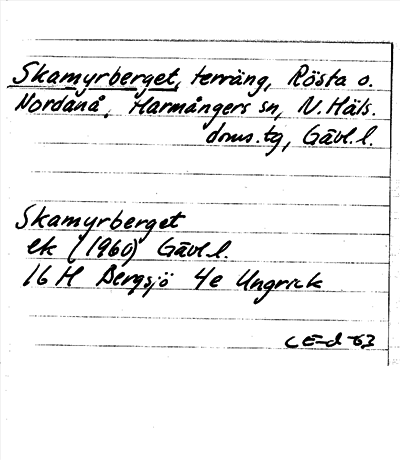 Skamyrberget, terräng, Rösta o.
Nordanå, Harmångers sn, N. Häls.
doms.tg, Gävl.l.
Skamyrberget
ek (1960) Gävl.l.
16 H Bergsjö 4e Ungrick
CE-d -63